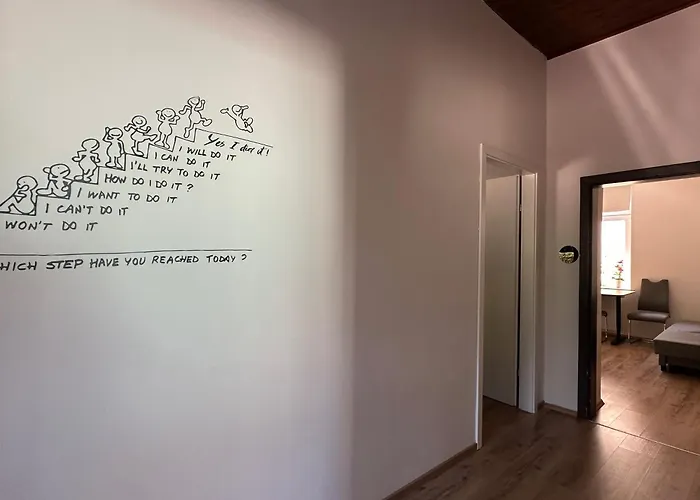 Yes I did it!
I WILL DO IT
I CAN DO IT
I'LL TRY TO DO IT
HOW DO I DO IT?
I WANT TO DO IT
I CAN'T DO IT
WON'T DO IT
WHICH STEP HAVE YOU REACHED TODAY?